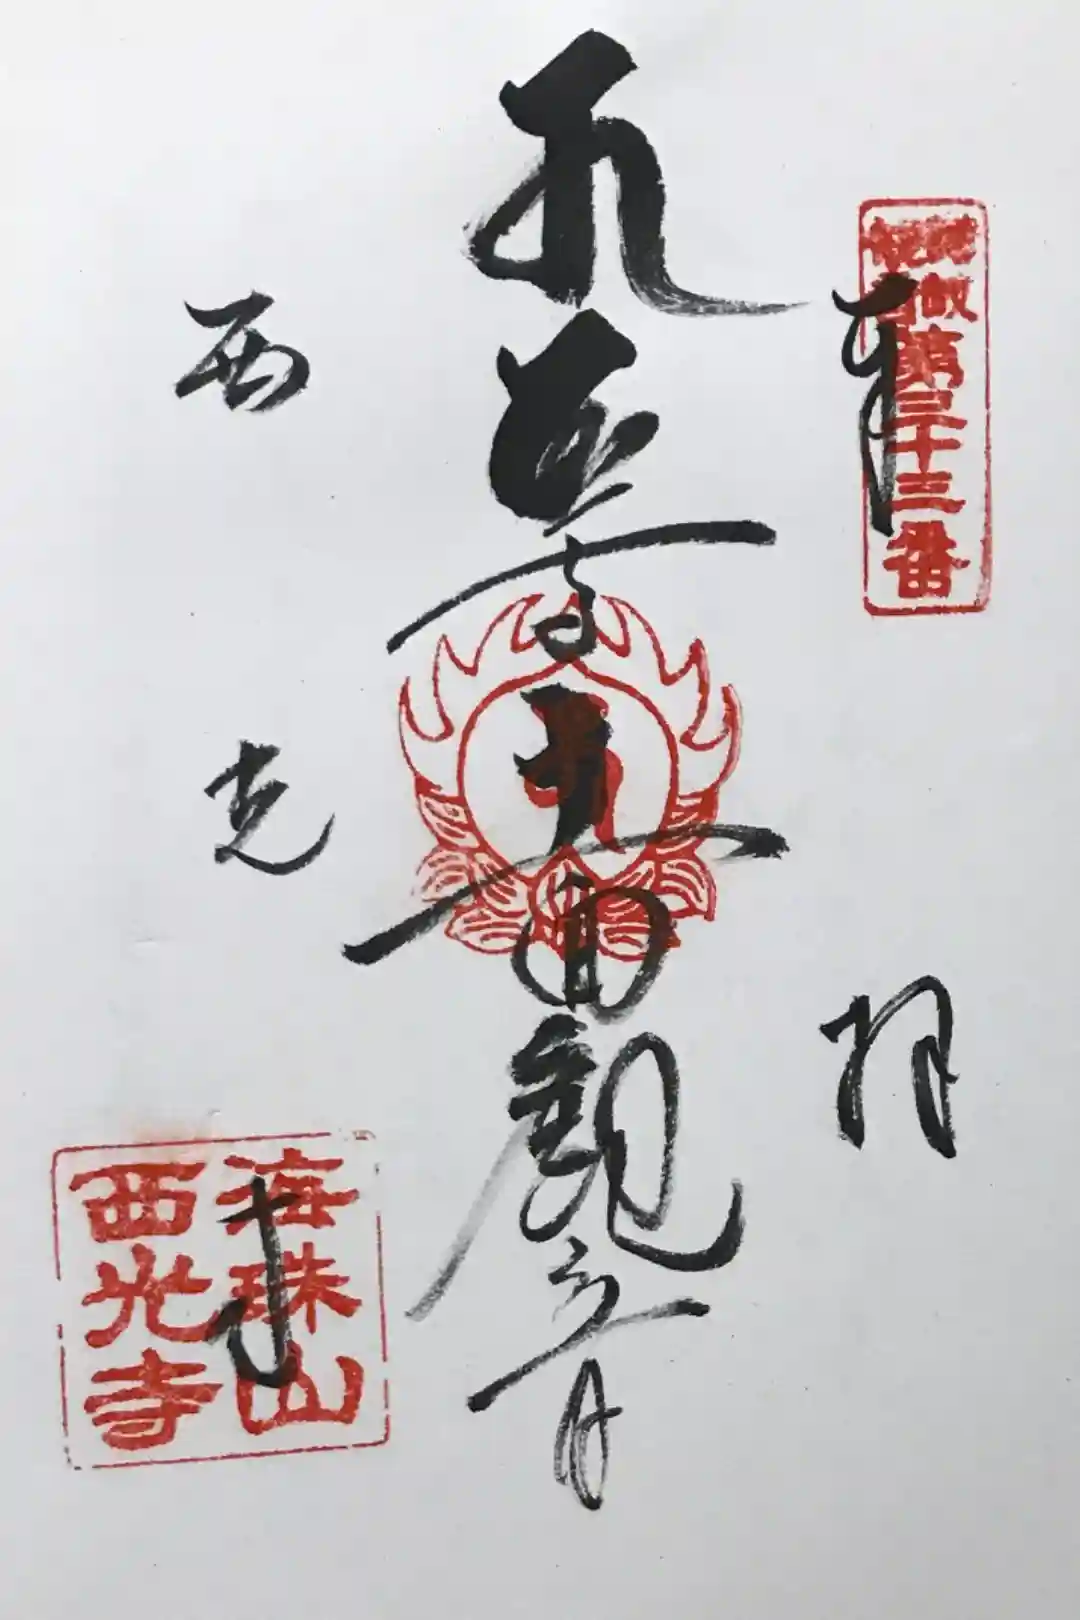 第三十三番
奉拝
尊十一面観音
西光寺
海珠山
西光寺